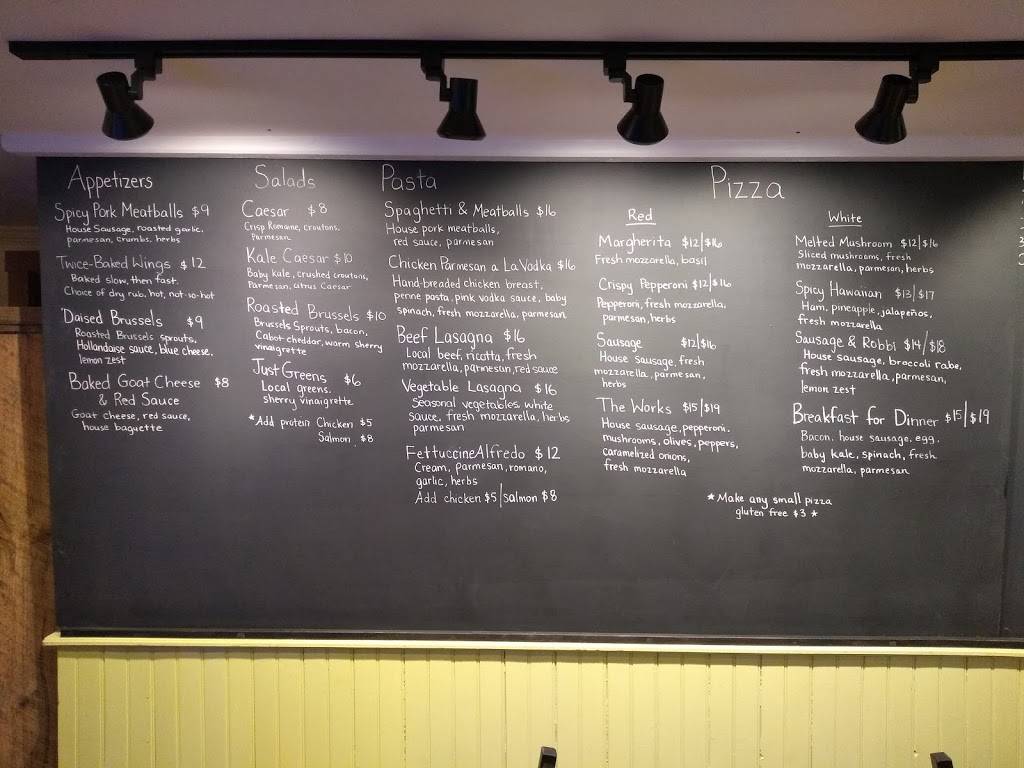 Appetizers
Spicy Pork Meatballs $9
House Sausage, roasted garlic,
parmesan, crumbs, herbs
Twice-Baked Wings $12
Baked slow, then fast.
Choice of dry rub, hot, not-so-hot
Daised Brussels $9
Roasted Brussels sprouts,
Hollandaise sauce, blue cheese,
lemon zest
Baked Goat Cheese $8
& Red Sauce
Goat cheese, red sauce,
house baguette
Salads
Caesar $8
Crisp Romaine, croutons,
Parmesan
Kale Caesar $10
Baby kale, crushed croutons,
Parmesan, citrus Caesar
Roasted Brussels $10
Brussels Sprouts, bacon,
Cabot cheddar, warm sherry
vinaigrette
Just Greens $6
Local greens,
sherry vinaigrette
*Add protein Chicken $5
Salmon $8
Pasta
Spaghetti & Meatballs $16
House pork meatballs,
red sauce, parmesan
Chicken Parmesan a La Vodka $16
Hand-breaded chicken breast,
penne pasta, pink vodka sauce, baby
spinach, fresh mozzarella, parmesan
Beef Lasagna $16
Local beef, ricotta, fresh
mozzarella, parmesan, red sauce
Vegetable Lasagna $16
Seasonal vegetables, white
sauce, fresh mozzarella, herbs
parmesan
Fettuccine Alfredo $12
Cream, parmesan, romano,
garlic, herbs
Add chicken $5/salmon $8
Pizza
Red
Margherita $12/$16
Fresh mozzarella, basil
Crispy Pepperoni $12/$16
Pepperoni, fresh mozzarella,
parmesan, herbs
Sausage $12/$16
House Sausage, fresh
mozzarella, parmesan,
herbs
The Works $15/$19
House sausage, pepperoni,
mushrooms, olives, peppers,
caramelized onions,
fresh mozzarella
White
Melted Mushroom $12/$16
Sliced mushrooms, fresh
mozzarella, parmesan, herbs
Spicy Hawaiian $13/$17
Ham, pineapple, jalapeños,
fresh mozzarella
Sausage & Robbi $14/$18
House sausage, broccoli rabe,
fresh mozzarella, parmesan,
lemon zest
Breakfast for Dinner $15/$19
Bacon, house sausage, egg,
baby kale, spinach, fresh
mozzarella, parmesan
*Make any small pizza
gluten free $3 *